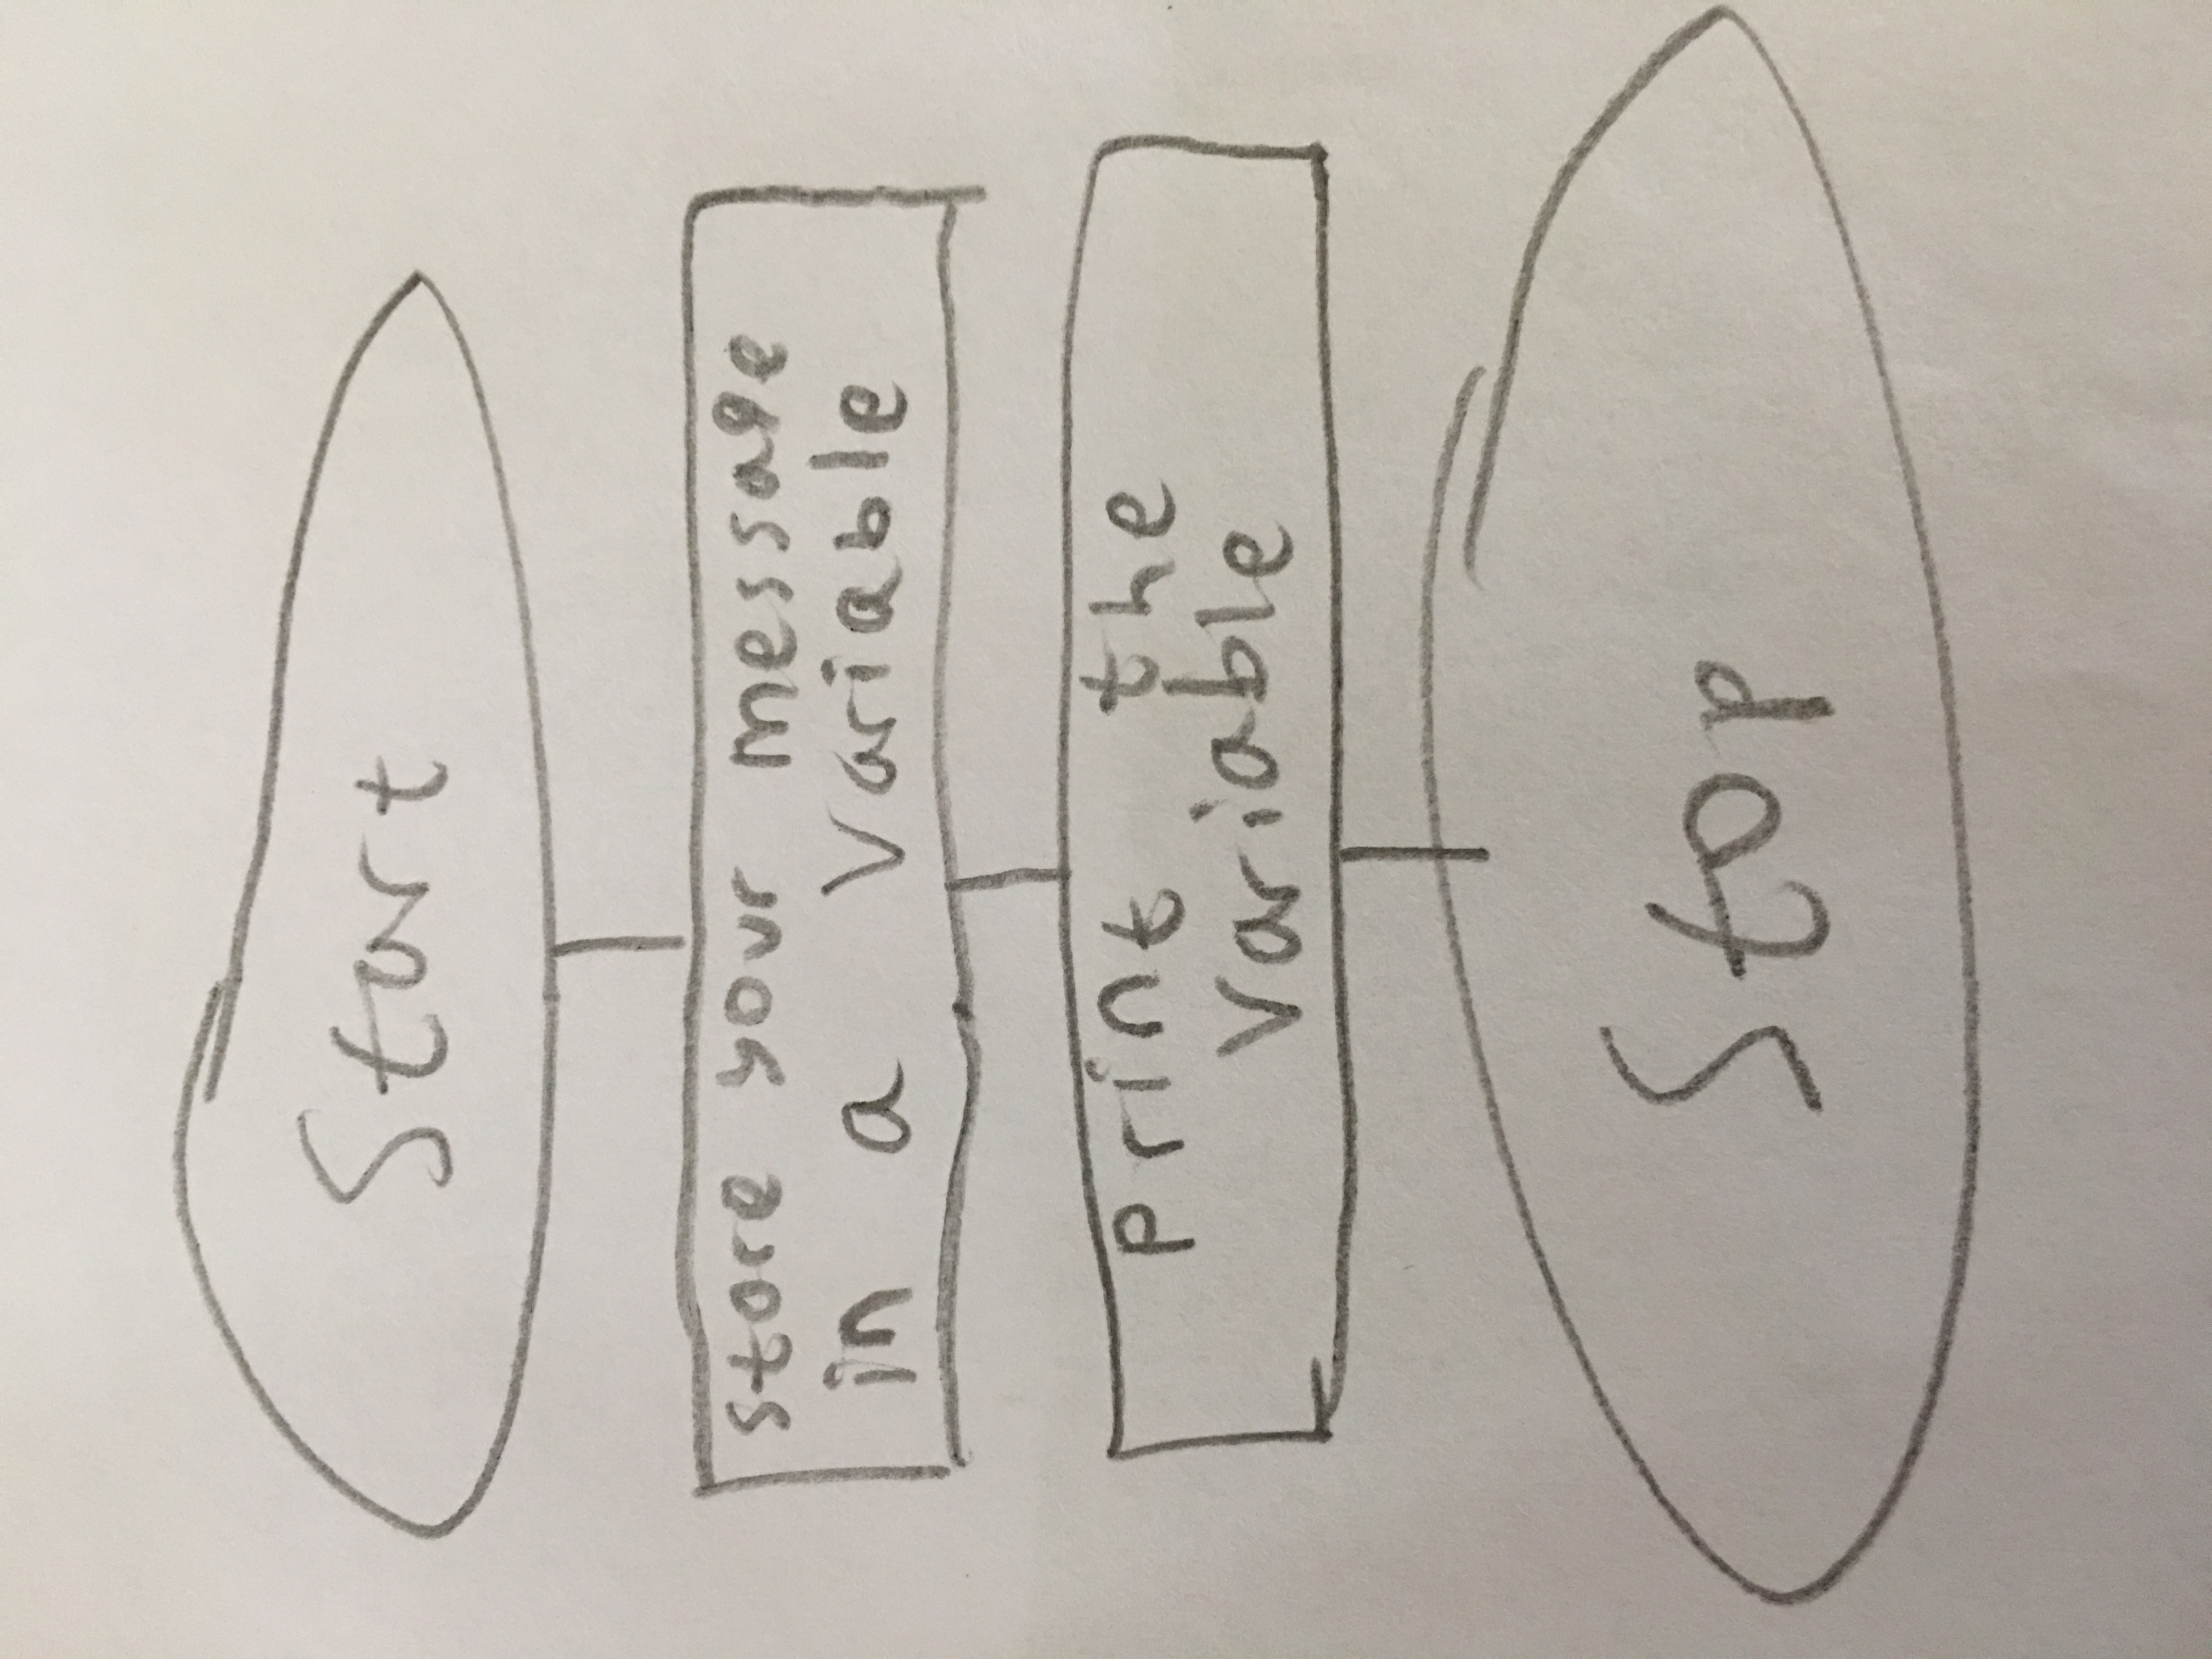 Start
store your message
in a Variable
print the
Variable
Stop